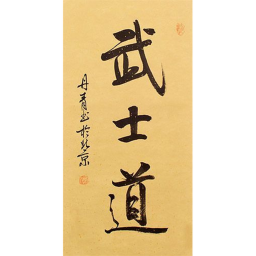 武士道
丹青书於北京